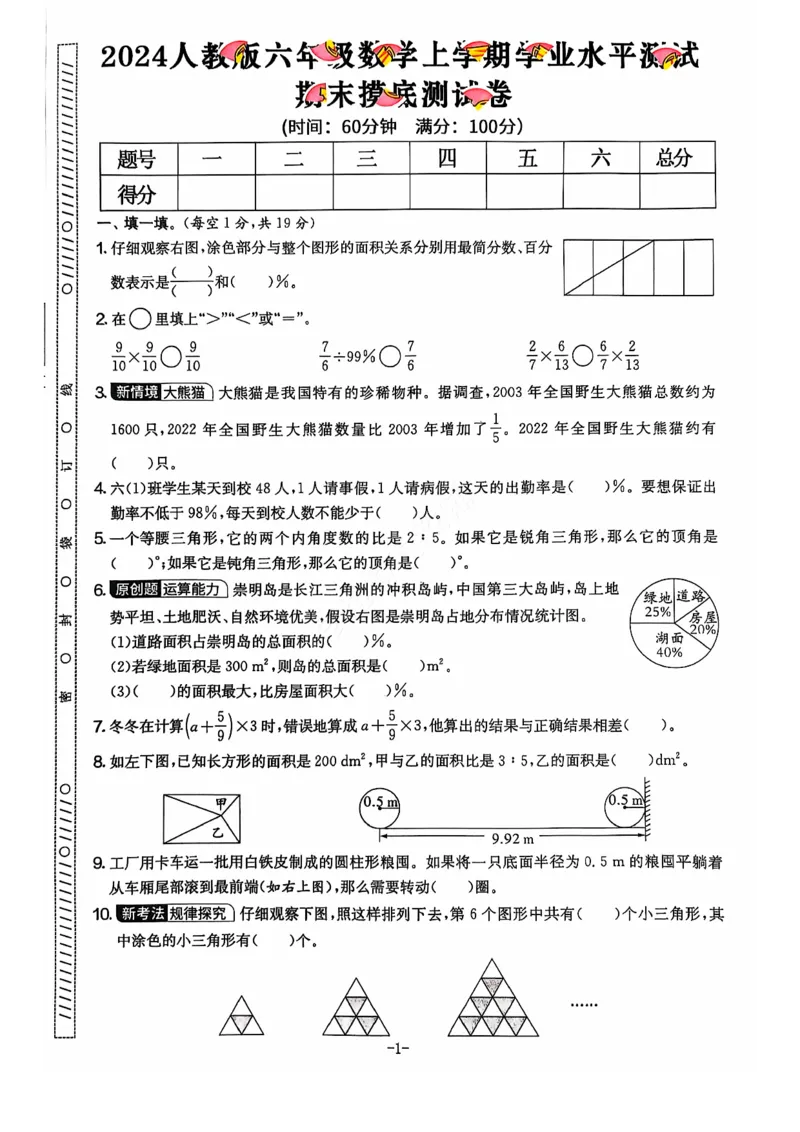 2024人教版六年级数学上学期学业水平测试
期末摸底测试卷
(时间：60分钟 满分：100分)
题号 一 二 三 四 五 六 总分
得分
一、填一填。(每空1分,共19分)
1.仔细观察右图,涂色部分与整个图形的面积关系分别用最简分数、百分
数表示是( )/( )和( )%。
2.在○里填上“>”“<”或“=”。
9/10×9/10○9/10 7/6÷99%○7/6 2/7×6/13○6/7×2/13
3.新情境 大熊猫 大熊猫是我国特有的珍稀物种。据调查,2003年全国野生大熊猫总数约为
1600只,2022年全国野生大熊猫数量比2003年增加了1/5。2022年全国野生大熊猫约有
( )只。
4.六(1)班学生某天到校48人,1人请事假,1人请病假,这天的出勤率是( )%。要想保证出
勤率不低于98%,每天到校人数不能少于( )人。
5.一个等腰三角形,它的两个内角度数的比是2∶5。如果它是锐角三角形,那么它的顶角是
( )°;如果它是钝角三角形,那么它的顶角是( )°。
6.原创题 运算能力 崇明岛是长江三角洲的冲积岛屿,中国第三大岛屿,岛上地
势平坦、土地肥沃、自然环境优美,假设右图是崇明岛占地分布情况统计图。
(1)道路面积占崇明岛的总面积的( )%。
(2)若绿地面积是300 m²,则岛的总面积是( )m²。
(3)( )的面积最大,比房屋面积大( )%。
绿地 25%
道路
房屋 20%
湖面 40%
7.冬冬在计算(a+5/9)×3时,错误地算成a+5/9×3,他算出的结果与正确结果相差( )。
8.如左下图,已知长方形的面积是200 dm²,甲与乙的面积比是3∶5,乙的面积是( )dm²。
甲
乙
0.5 m
0.5 m
9.92 m
9.工厂用卡车运一批用白铁皮制成的圆柱形粮囤。如果将一只底面半径为0.5 m的粮囤平躺着
从车厢尾部滚到最前端(如右上图),那么需要转动( )圈。
10.新考法 规律探究 仔细观察下图,照这样排列下去,第6个图形中共有( )个小三角形,其
中涂色的小三角形有( )个。
……
-1-
密 封 袋 订 线